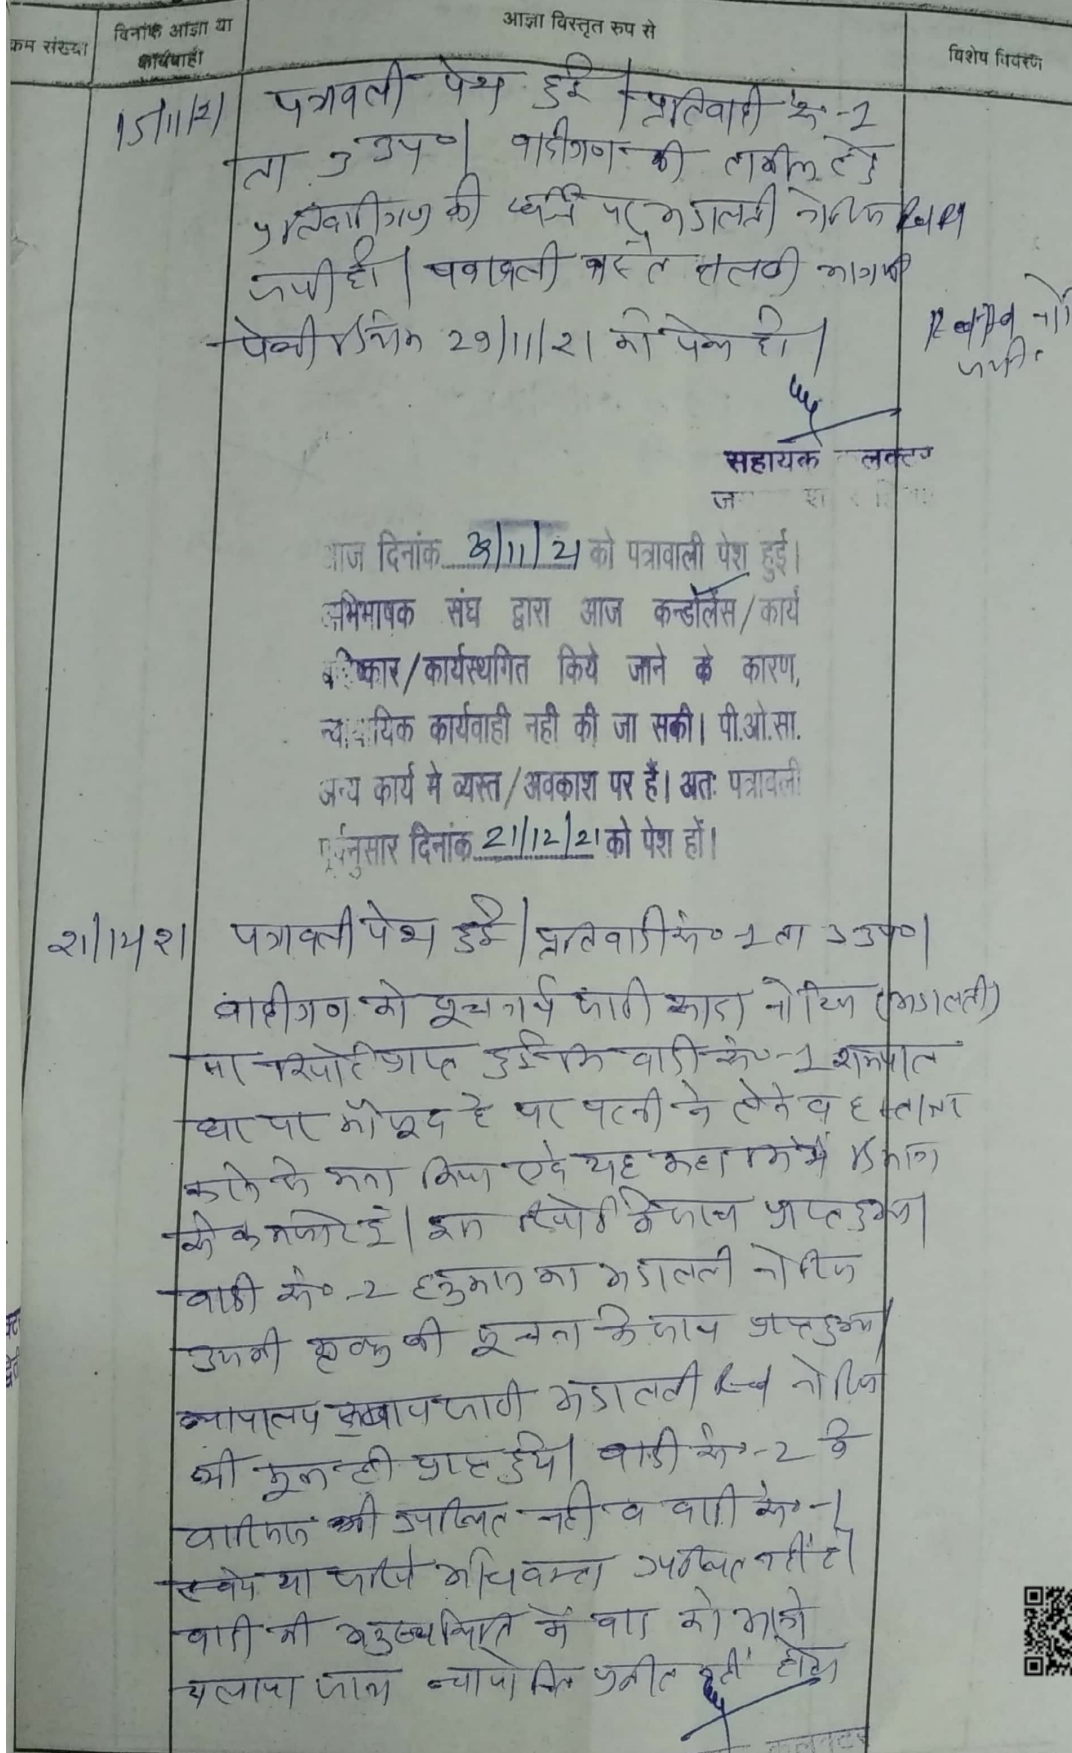 क्रम संख्या
दिनांक आज्ञा या
कार्यवाही
आज्ञा विस्तृत रुप से
विशेष विवरण
15/11/21 पत्रावली पेश हुई। प्रतिवादी सं०-1
ता 3 उप०। वादीगण की तामील हेतु
प्रतिवादीगण की पर अदालती नोटिस
जारी हो। पत्रावली वास्ते तलबी आगामी
पेशी दिनांक 29/11/21 को पेश हो।
सहायक कलक्टर
आज दिनांक 29/11/21 को पत्रावाली पेश हुई।
अभिभाषक संघ द्वारा आज कन्डोलेंस/कार्य
बहिष्कार/कार्यस्थगित किये जाने के कारण,
न्यायिक कार्यवाही नही की जा सकी। पी.ओ.सा.
अन्य कार्य मे व्यस्त/अवकाश पर हैं। अतः पत्रावली
पूर्वनुसार दिनांक 21/12/21 को पेश हों।
21/12/21 पत्रावली पेश हुई। प्रतिवादी सं० 1 ता 3 उप०।
वादीगण को सूचनार्थ जारी नोटिस (अदालती)
रिपोर्ट प्राप्त हुई कि वादी सं०-1 रामपाल
घर पर मौजूद है पर पत्नी ने लेने व हस्ताक्षर
करने से मना किया एवं यह कहा कि ये दिमाग
से कमजोर है। इस रिपोर्ट के साथ प्राप्त हुआ।
वादी सं०-2 हनुमान का अदालती नोटिस
उसकी मृत्यु की सूचना के साथ प्राप्त हुआ।
न्यायालय द्वारा जारी अदालती नोटिस
भी मूल ही प्राप्त हुये। वादी सं०-2 के
वारिसान भी उपस्थित नही व वादी सं०-1
स्वयं या जरिये अधिवक्ता उपस्थित नहीं है।
वादी की अनुपस्थिति में वाद को आगे
चलाया जाना न्यायोचित प्रतीत नहीं होता
कलक्टर